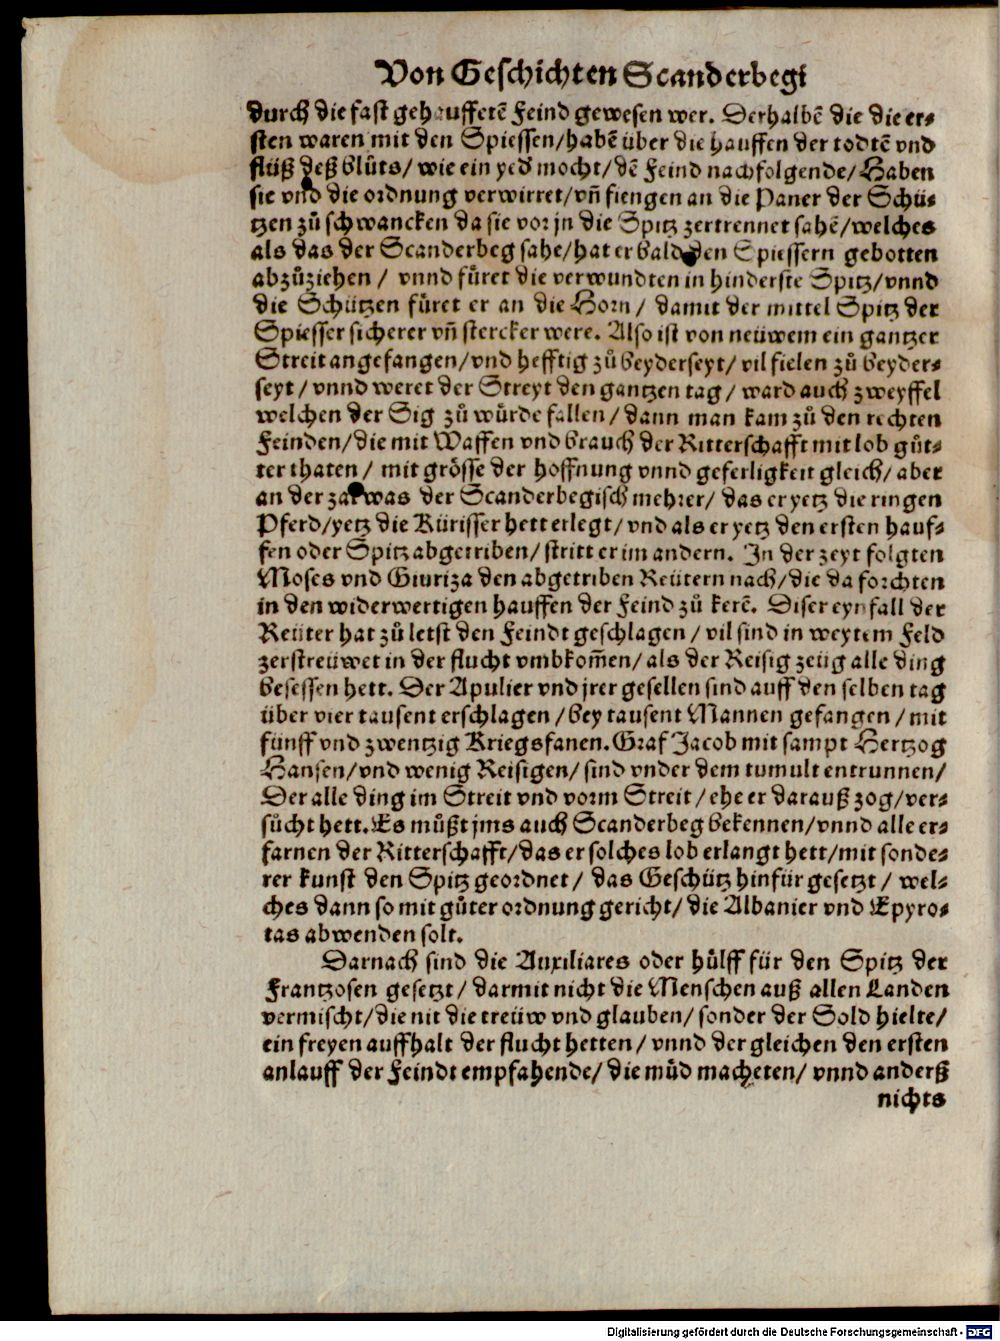 Von Geschichten Scanderbegi
durch die fast gehauffetẽ Feind gewesen wer. Derhalbẽ die die er⸗
sten waren mit den Spiessen/habẽ über die hauffen der todtẽ vnd
flüß deß blůts/ wie ein yed mocht/dẽ Feind nachfolgende/Haben
sie vnd die ordnung verwirret/vñ fiengen an die Paner der Schü⸗
tzen zů schwancken da sie vor jn die Spitz zertrennet sahẽ/welches
als das der Scanderbeg sahe/hat er bald den Spiessern gebotten
abzůziehen / vnnd fůret die verwundten in hinderste Spitz/vnnd
die Schützen fůret er an die Horn/ damit der mittel Spitz der
Spiesser sicherer vñ stercker were. Also ist von neüwem ein gantzer
Streit angefangen/vnd hefftig zů beyderseyt/ vil fielen zů beyder⸗
seyt / vnnd weret der Streyt den gantzen tag / ward auch zweyffel
welchen der Sig zů würde fallen / dann man kam zů den rechten
Feinden/die mit Waffen vnd brauch der Ritterschafft mit lob gůt⸗
ter thaten / mit grösse der hoffnung vnnd geferligkeit gleich/ aber
an der zal was der Scanderbegisch mehrer/ das er yetz die ringen
Pferd/yetz die Kürisser hett erlegt/ vnd als er yetz den ersten hauf⸗
fen oder Spitz abgetriben/ stritt er im andern. In der zeyt folgten
Moses vnd Giuriza den abgetriben Reütern nach/die da forchten
in den widerwertigen hauffen der Feind zů kerẽ. Diser eynfall der
Reüter hat zů letst den Feindt geschlagen / vil sind in weytem Feld
zerstreüwet in der flucht vmbkom̃en/ als der Reisig zeüg alle ding
besessen hett. Der Apulier vnd jrer gesellen sind auff den selben tag
über vier tausent erschlagen / bey tausent Mannen gefangen / mit
fünff vnd zwentzig Kriegsfanen. Graf Jacob mit sampt Hertzog
Hansen/vnd wenig Reisigen/ sind vnder dem tumult entrunnen/
Der alle ding im Streit vnd vorm Streit / ehe er darauß zog/ver⸗
sůcht hett. Es můßt jms auch Scanderbeg bekennen/vnnd alle er⸗
farnen der Ritterschafft/das er solches lob erlangt hett/mit sonde⸗
rer kunst den Spitz geordnet / das Geschütz hinfür gesetzt / wel⸗
ches dann so mit gůter ordnung gericht/ die Albanier vnd Epyro⸗
tas abwenden solt.
Darnach sind die Auxiliares oder hülff für den Spitz der
Frantzosen gesetzt / darmit nicht die Menschen auß allen Landen
vermischt/die nit die treüw vnd glauben/ sonder der Sold hielte/
ein freyen auffhalt der flucht hetten/ vnnd der gleichen den ersten
anlauff der Feindt empfahende/ die můd macheten/ vnnd anderß
nichts
Digitalisierung gefördert durch die Deutsche Forschungsgemeinschaft - DFG